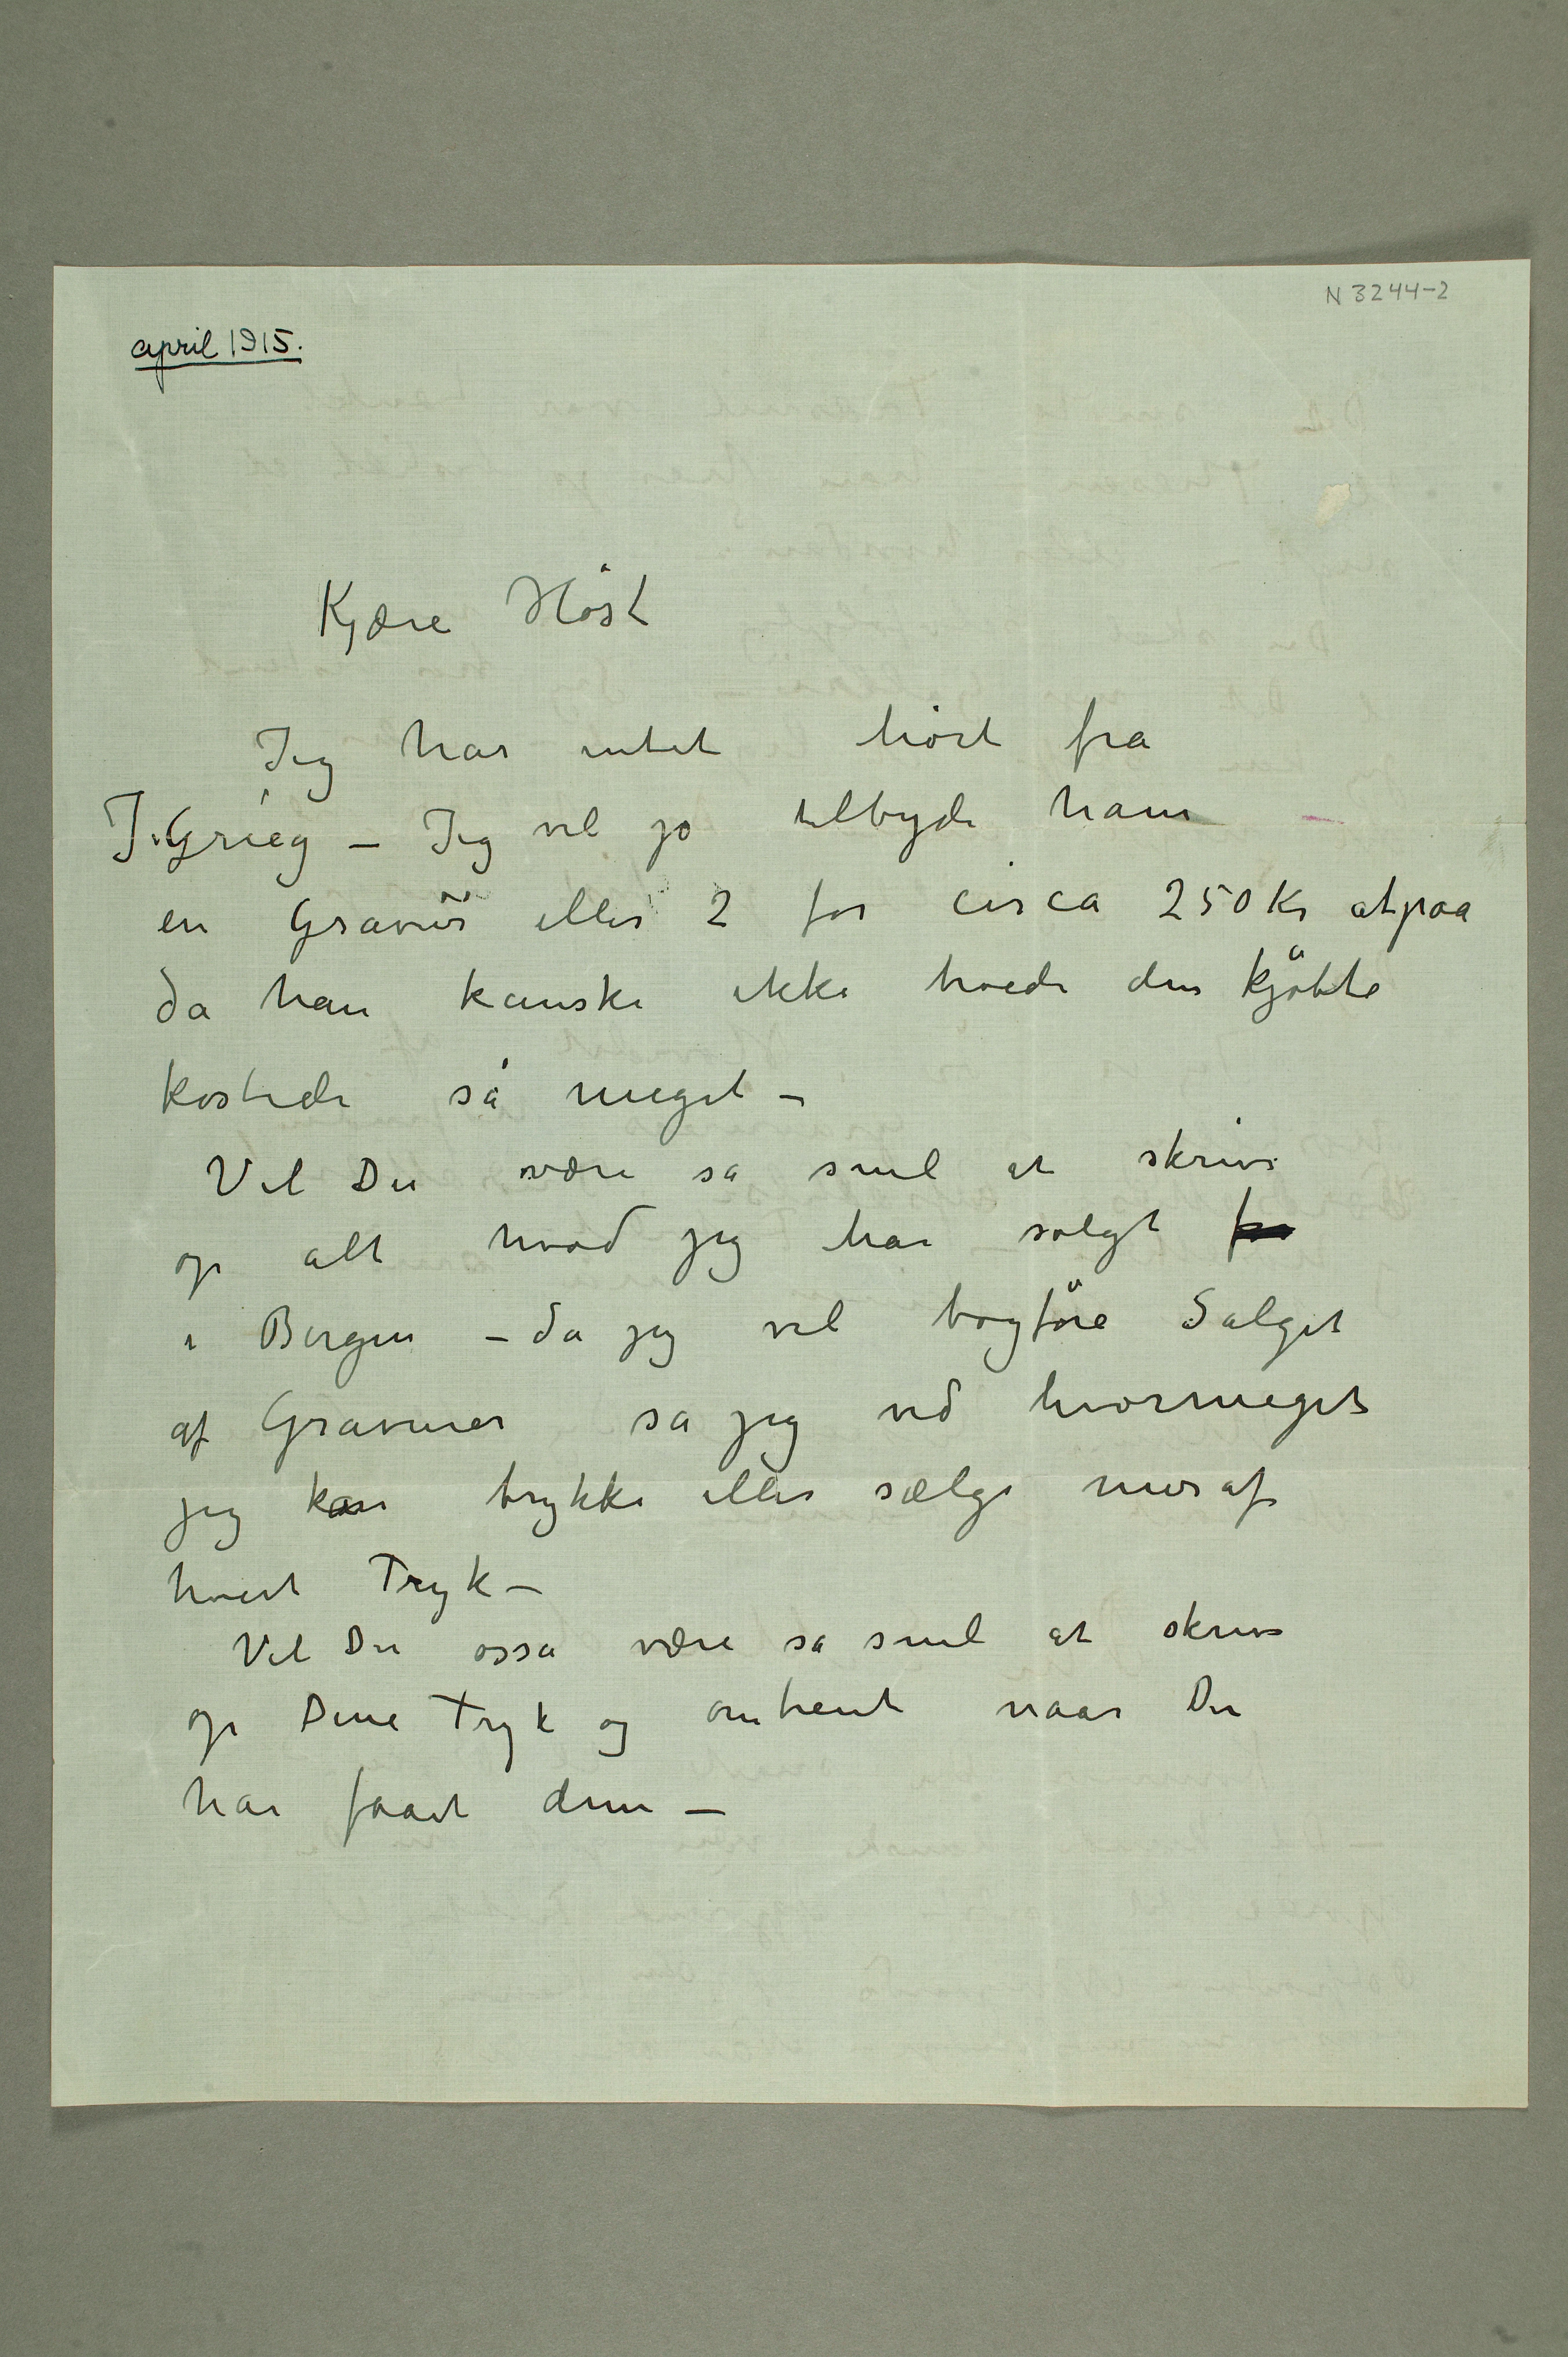 N 3244-2
april 1915.
Kjære Höst
Jeg har intet hört fra
J. Grieg – Jeg vil jo tilbyde ham
en Gravür eller 2 for circa 250 Kr atpaa
da han kanske ikke troede den kjöbte
kostede så meget –
Vil Du være så snil at skrive
op alt hvad jeg har solgt fra
i Bergen – da jeg vil bogföre Salget
af Gravurer så jeg ved hvormeget
jeg kan trykke eller sælge mer af
hvert Tryk –
Vil Du osså være så snil at skrive
op Dine Tryk og omtrent naar Du
har faaet dem –